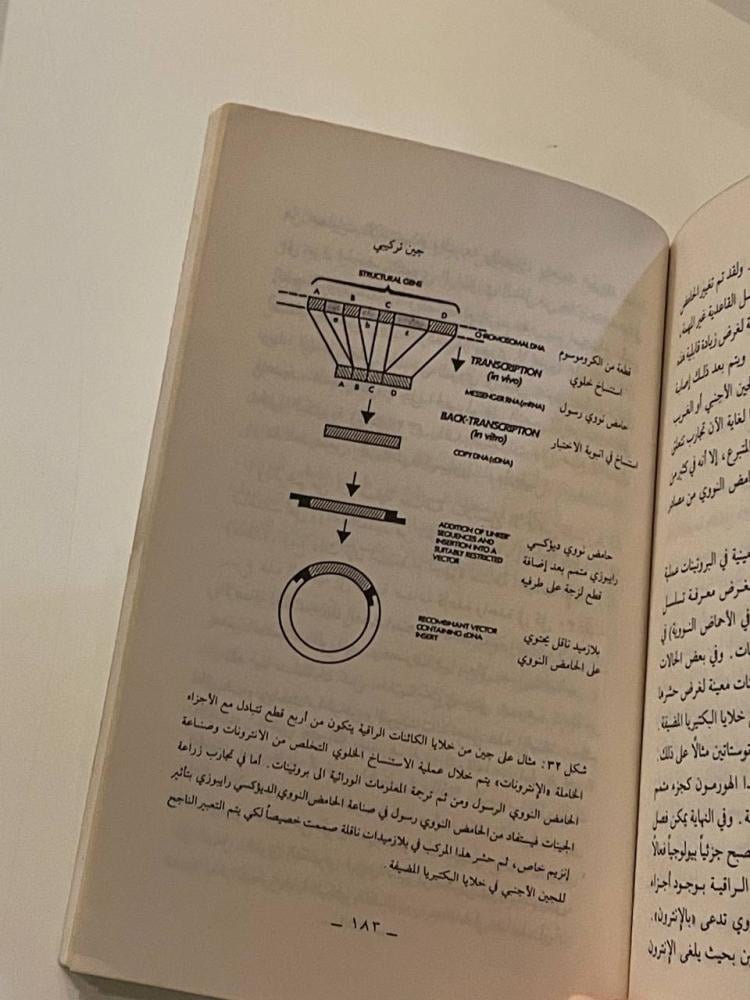 جين تركيبي
STRUCTURAL GENE
A B C D
a b c
CHROMOSOMAL DNA
قطعة من الكروموسوم
TRANSCRIPTION
(in vivo)
استنساخ خلوي
A B C D
MESSENGER RNA (mRNA)
حامض نووي رسول
BACK-TRANSCRIPTION
(in vitro)
استنساخ في انبوبة الاختبار
COPY DNA (cDNA)
ADDITION OF 'LINKER'
SEQUENCES AND
INSERTION INTO A
SUITABLY RESTRICTED
VECTOR
حامض نووي ديؤكسي
رايبوزي متمم بعد إضافة
قطع لزجة على طرفيه
RECOMBINANT VECTOR
CONTAINING cDNA
INSERT
بلازميد ناقل يحتوي
على الحامض النووي
شكل ٣٢: مثال على جين من خلايا الكائنات الراقية يتكون من أربع قطع تتبادل مع الأجزاء
الخاملة «الإنترونات» يتم خلال عملية الاستنساخ الخلوي التخلص من الانترونات وصناعة
الحامض النووي الرسول ومن ثم ترجمة المعلومات الوراثية الى بروتينات. أما في تجارب زراعة
الجينات فيستفاد من الحامض النووي رسول في صناعة الحامض النووي الديؤكسي رايبوزي بتأثير
إنزيم خاص، ثم حشر هذا المركب في بلازميدات ناقلة صممت خصيصاً لكي يتم التعبير الناجح
للجين الأجنبي في خلايا البكتيريا المضيفة.
— ١٨٣ —
ولقد تم تغيير الحامض
القاعدية غير المهمة
لغرض زيادة قابلية هذه
ويتم بعد ذلك إصابة
الأجنبي أو الغريب
لغاية الآن تجارب تتعلق
المتبرع، إلا أنه في كثير من
النووي من مصادر
معينة في البروتينات عملية
لغرض معرفة تسلسل
في الأحماض النووية) في
وفي بعض الحالات
معينة لغرض حشرها
خلايا البكتيريا المضيفة.
مثالًا على ذلك.
الهورمون كجزء متمم
وفي النهاية يمكن فصل
جزئياً بيولوجياً فعالاً
الراقية بوجود أجزاء
تدعى «بالإنترون».
بحيث يلغى الإنترون